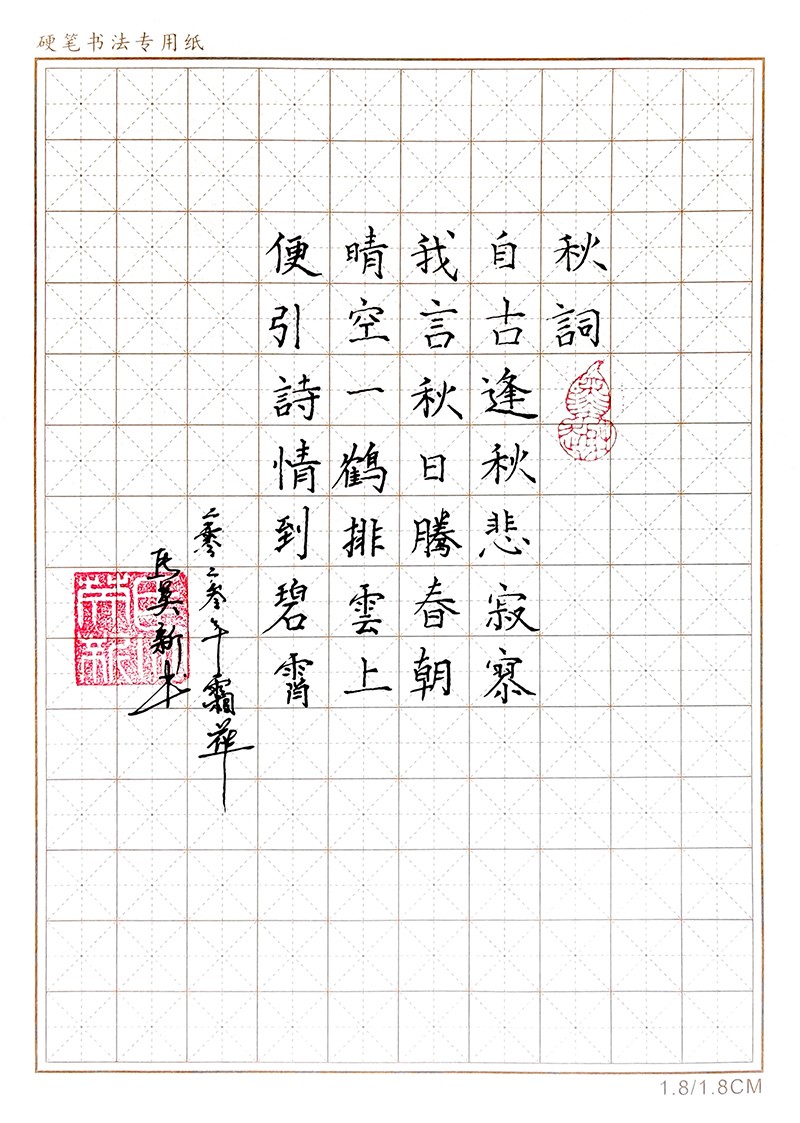 硬笔书法专用纸
秋詞
自古逢秋悲寂寥
我言秋日騰春朝
晴空一鶴排雲上
便引詩情到碧霄
二零二叁年霜華
吴新
1.8/1.8CM